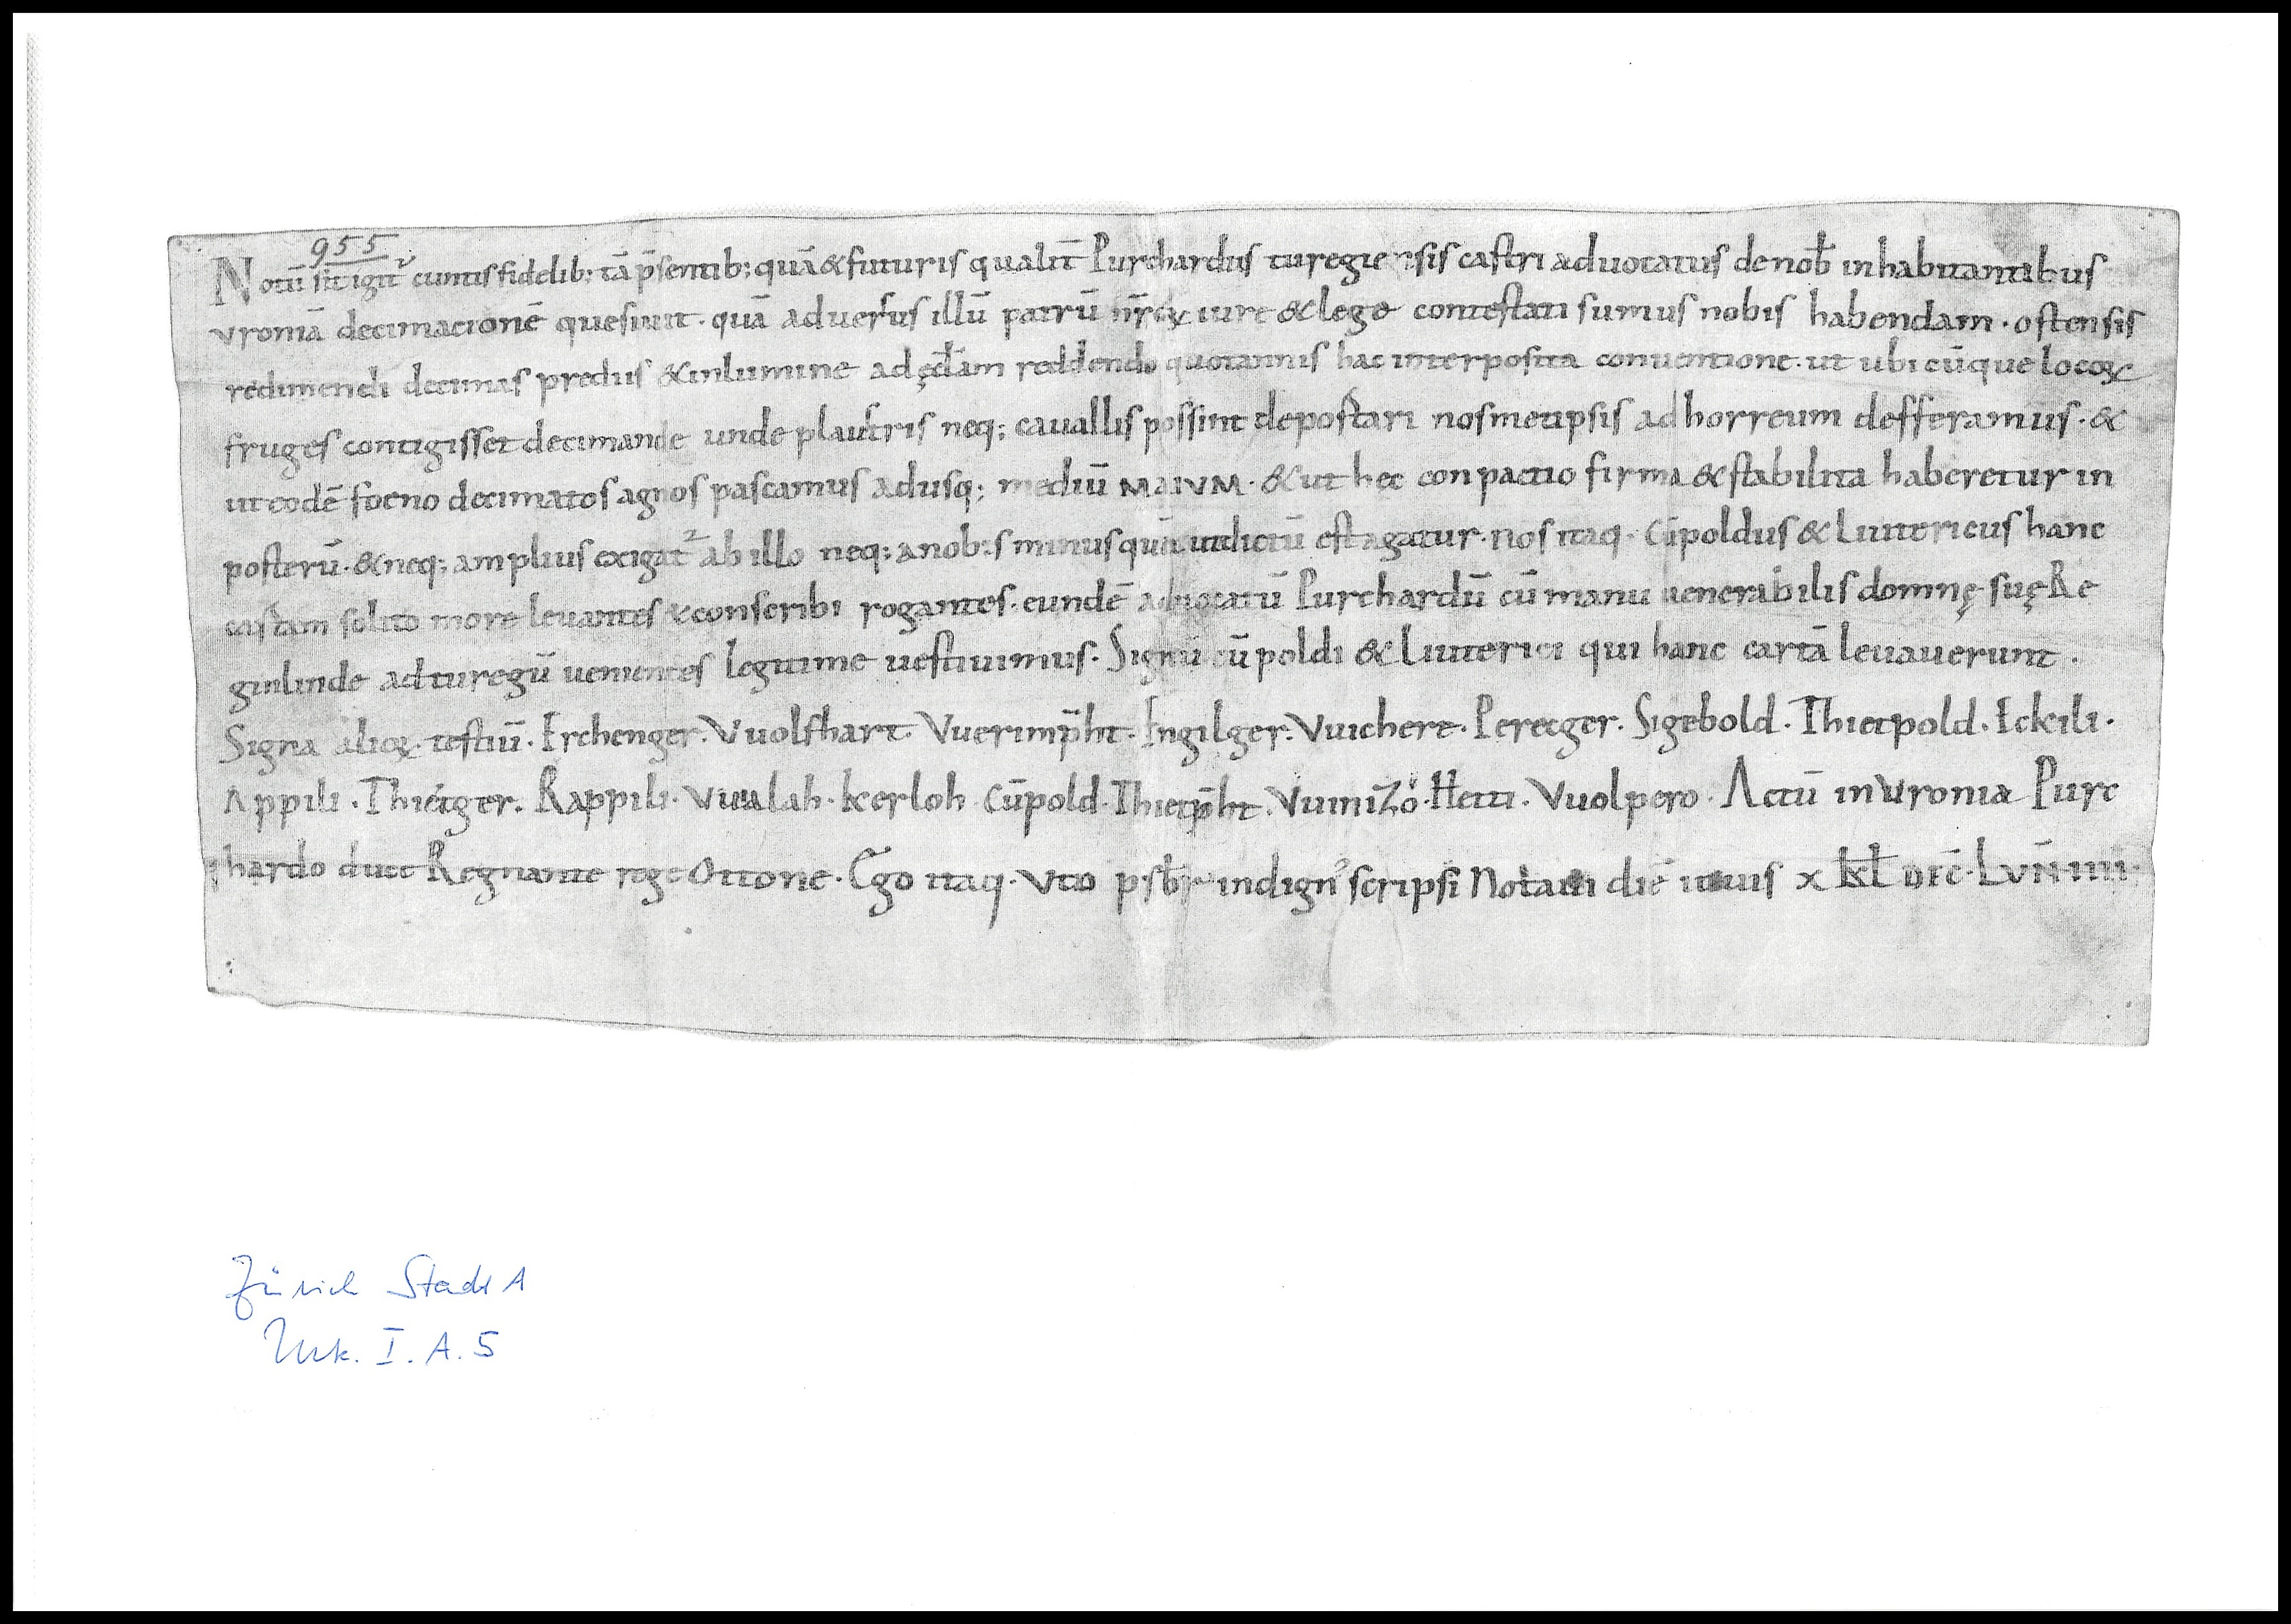 955
Notū sit igit᷑ cunctis fidelib; tā p̄sentib; quā & futuris qualit̄ Purchardus turegiensis castri aduocatus de nob̄ inhabitantibus
vroniā decimacionē quesiuit · quā aduersus illū patrū nr̄oꝝ iure & lege contestati sumus nobis habendam · ostensis
redimendi decimas prediis & in lumine ad ęcl̄am reddendo quotannis hac interposita conuentione · ut ubicūque locoꝝ
fruges contigisset decimande unde plaustris neq; cauallis possint depostari nosmetipsis ad horreum defferamus · &
ut eodē foeno decimatos agnos pascamus adusq; mediū MAIVM · & ut hec conpactio firma & stabilita haberetur in
posterū · & neq; amplius exigat᷑ ab illo neq; a nobis minus quā indictū est agatur · nos itaq · Cūpoldus & Liutericus hanc
cartam solito more leuantes & conscribi rogantes · eundē aduocatū Purchardū cū manu uenerabilis domnę suę Re
ginlinde ad turegū uenientes legitime uestiuimus · Signū cūpoldi & Liuterici qui hanc cartā leuauerunt ·
Signa alioꝝ · testiū · Erchenger · Vuolfhart · Vuerimp̄ht · Engilger · Vuichere · Perecger · Sigebold · Thietpold · Eckili ·
Appili · Thietger · Rappili · Vualah · Kerloh · Cūpold · Thietp̄ht · Vuinizo · Hetti · Vuolpero · Actū in Vronia Purc
hardo duce Regnante rege Ottone · Ego itaq · Vto p̄sb̄r indign᾽ scripsi Notaui diē iouis x kl̄ DEC̄ · Lvn̄ IIII ·
Zürich StadtA
Urk. I. A. 5